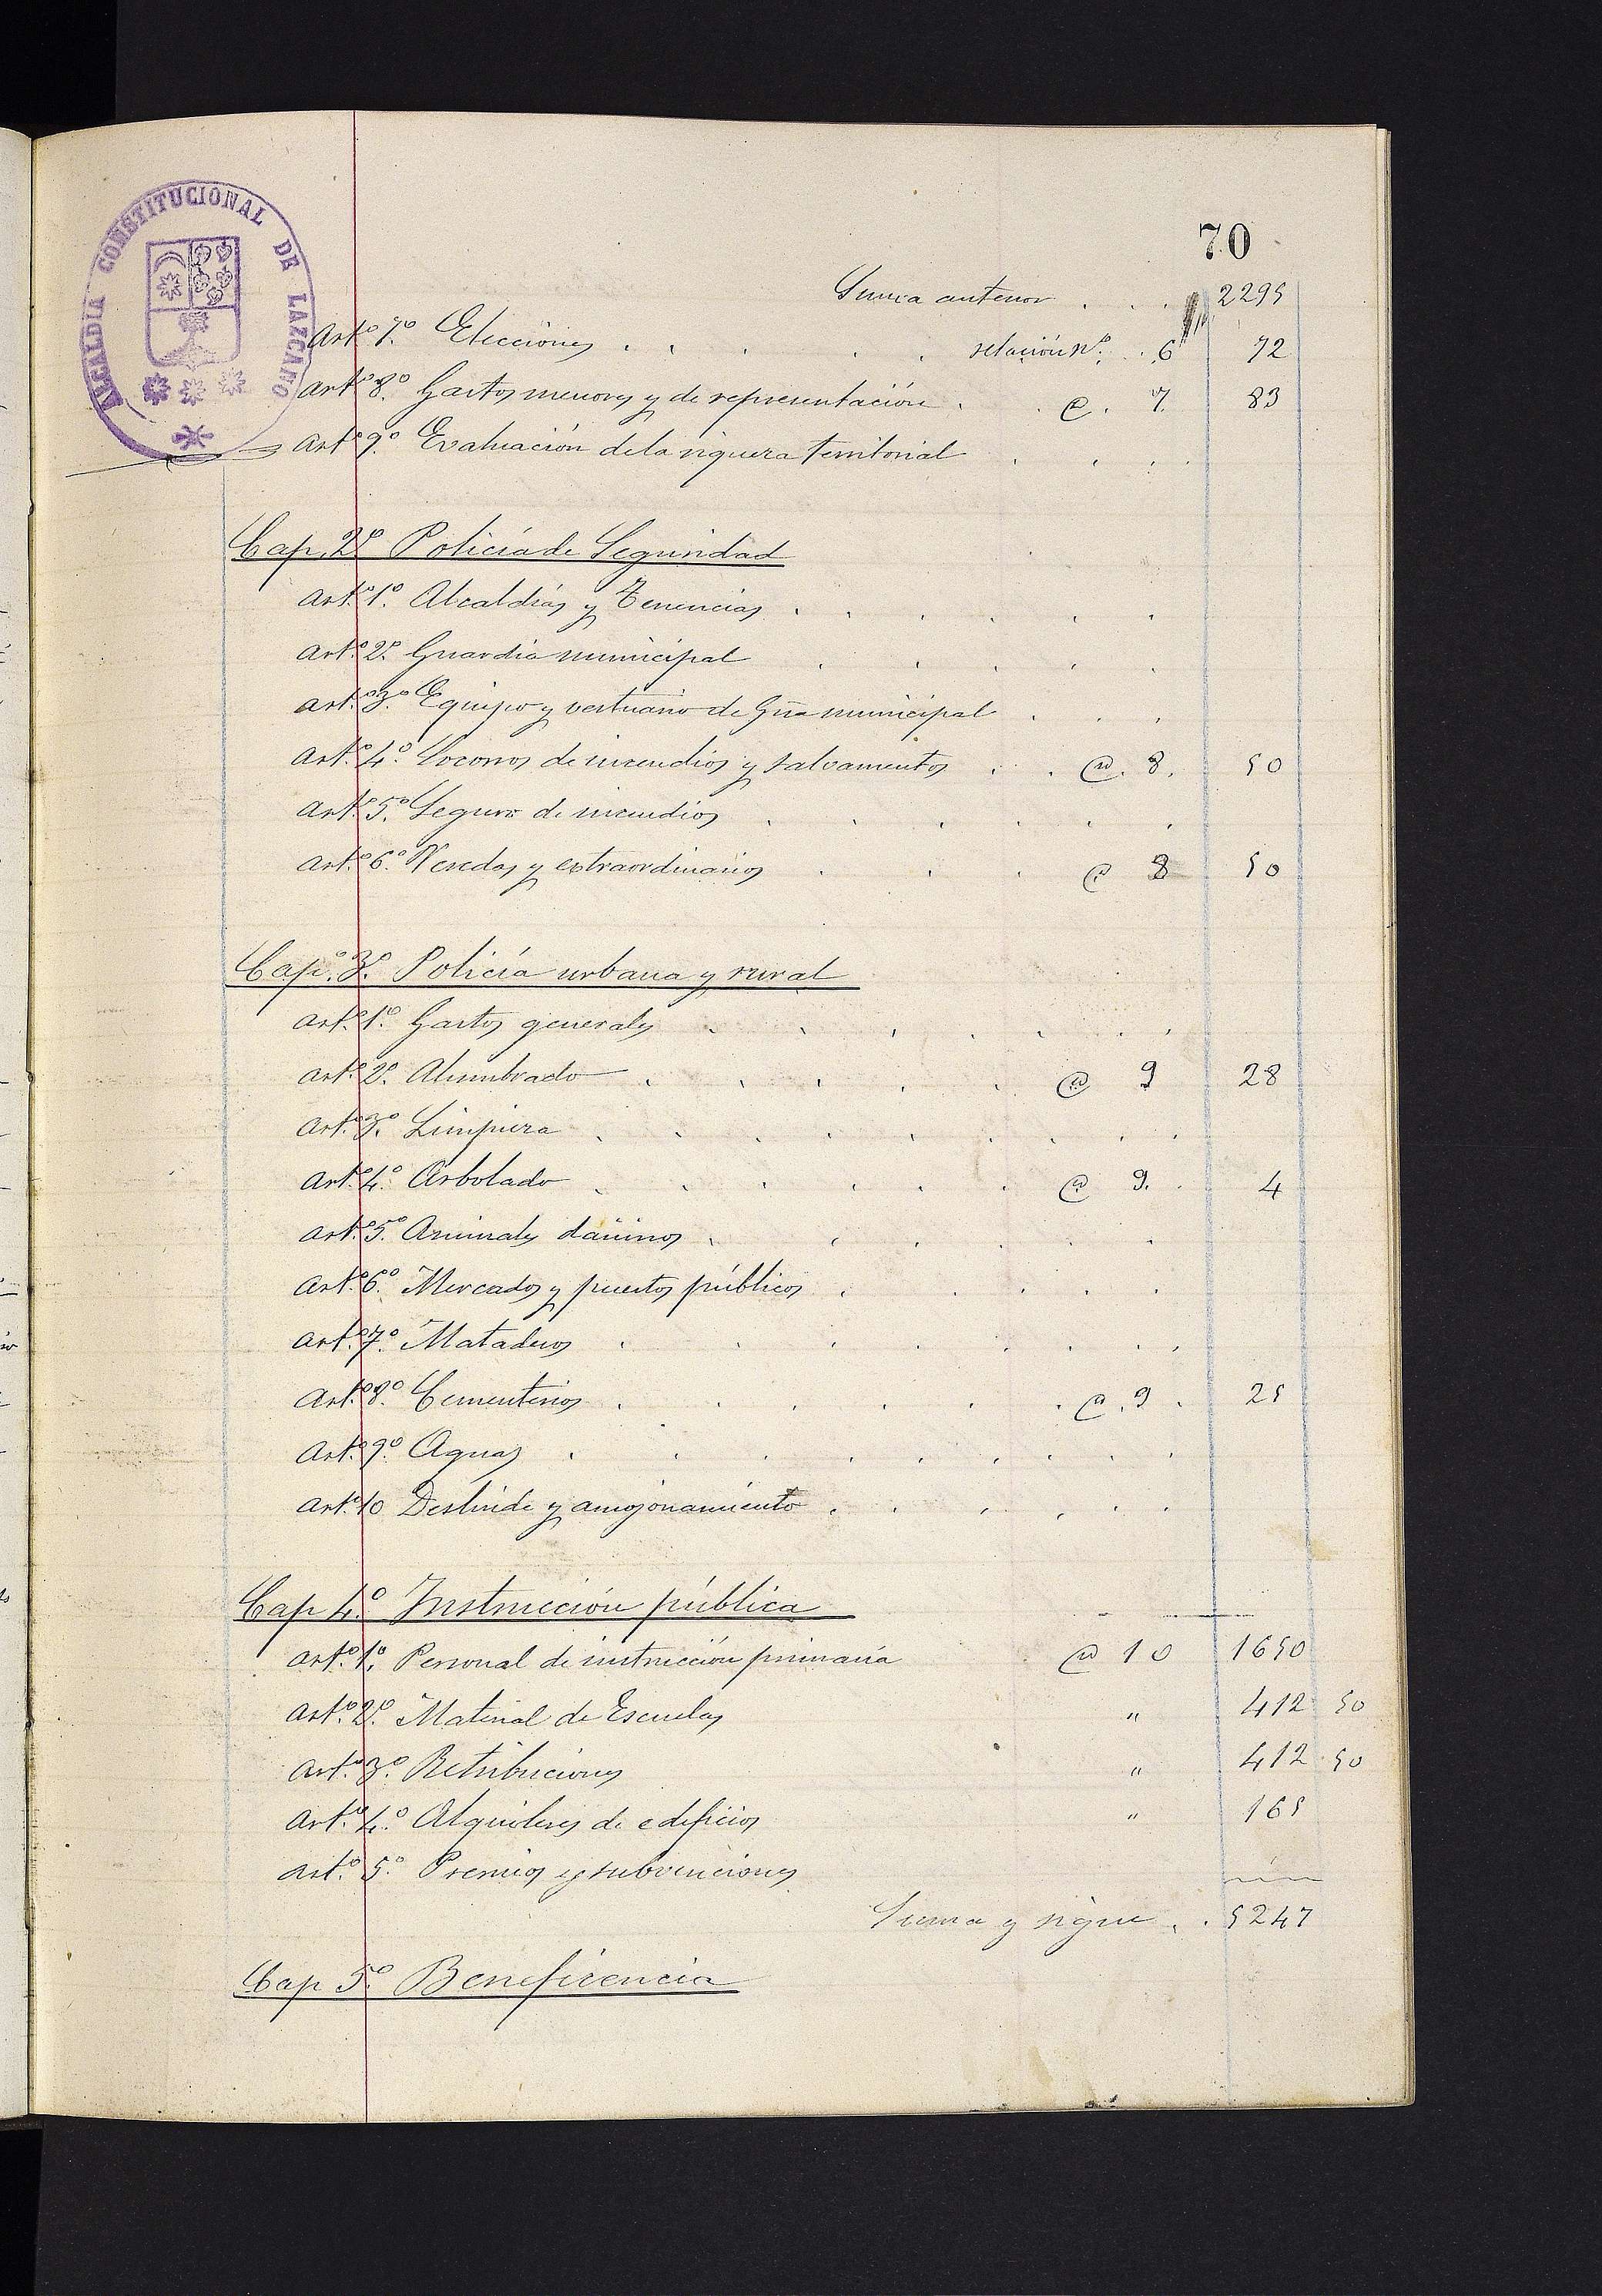 ALCALDIA CONSTITUCIONAL DE LAZCANO
70
Suma anterior . . . 2295
Artº 7º. Elecciones . . . . . relación nº. . 6 72
Artº 8º. Gastos menores y de representación . . @ . 7. 83
Artº 9º. Evaluación de la riqueza territorial . . . .
Cap. 2º Policía de Seguridad
Artº. 1º. Alcaldías y Tenencias . . . . . .
Artº. 2º. Guardia municipal . . . . .
Artº. 3º. Equipo y vestuario de Gıa municipal . . .
Artº. 4º. Socorros de incendios y salvamentos . . @. 8. 50
Artº. 5º. Seguro de incendios . . . . . .
Artº. 6º. Veredas y extraordinarios . . . @ 8 50
Capº. 3º. Policía urbana y rural
Artº. 1º. Gastos generales . . . . . . .
Artº. 2º. Alumbrado . . . . . @ 9 28
Artº. 3º. Limpieza . . . . . . . .
Artº. 4º. Arbolado . . . . . . @ 9. . 4
Artº. 5º. Animales dañinos . . . . . .
Artº. 6º. Mercados y puestos públicos . . . . .
Artº. 7º. Mataderos . . . . . . . .
Artº. 8º. Cementerios . . . . . . @ . 9 . 25
Artº. 9º. Aguas . . . . . . . . .
Artº. 10 Deslinde y amojonamiento . . . . . .
Cap 4º. Instrucción pública
Artº. 1º. Personal de instrucción primaria @ 10 1650
Artº. 2º. Material de Escuelas " 412 50
Artº. 3º. Retribuciones " 412 50
Artº. 4º. Alquileres de edificios " 165
Artº. 5º. Premios y subvenciones
Suma y sigue . . 5247
Cap 5º. Beneficencia